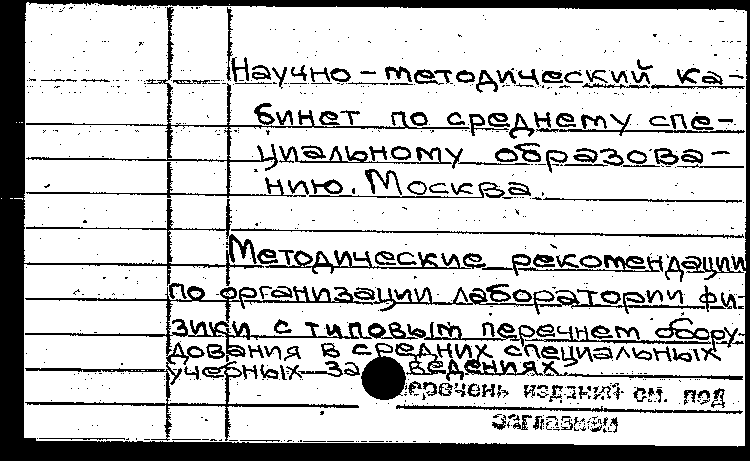 Научно-методический ка-
бинет по среднему спе-
циальному образова-
нию. Москва.
Методические рекомендации
по организации лаборатории фи-
зики с типовым перечнем обору-
дования в средних специальных
учебных заведениях.
Перечень изданий см. под
заглавием